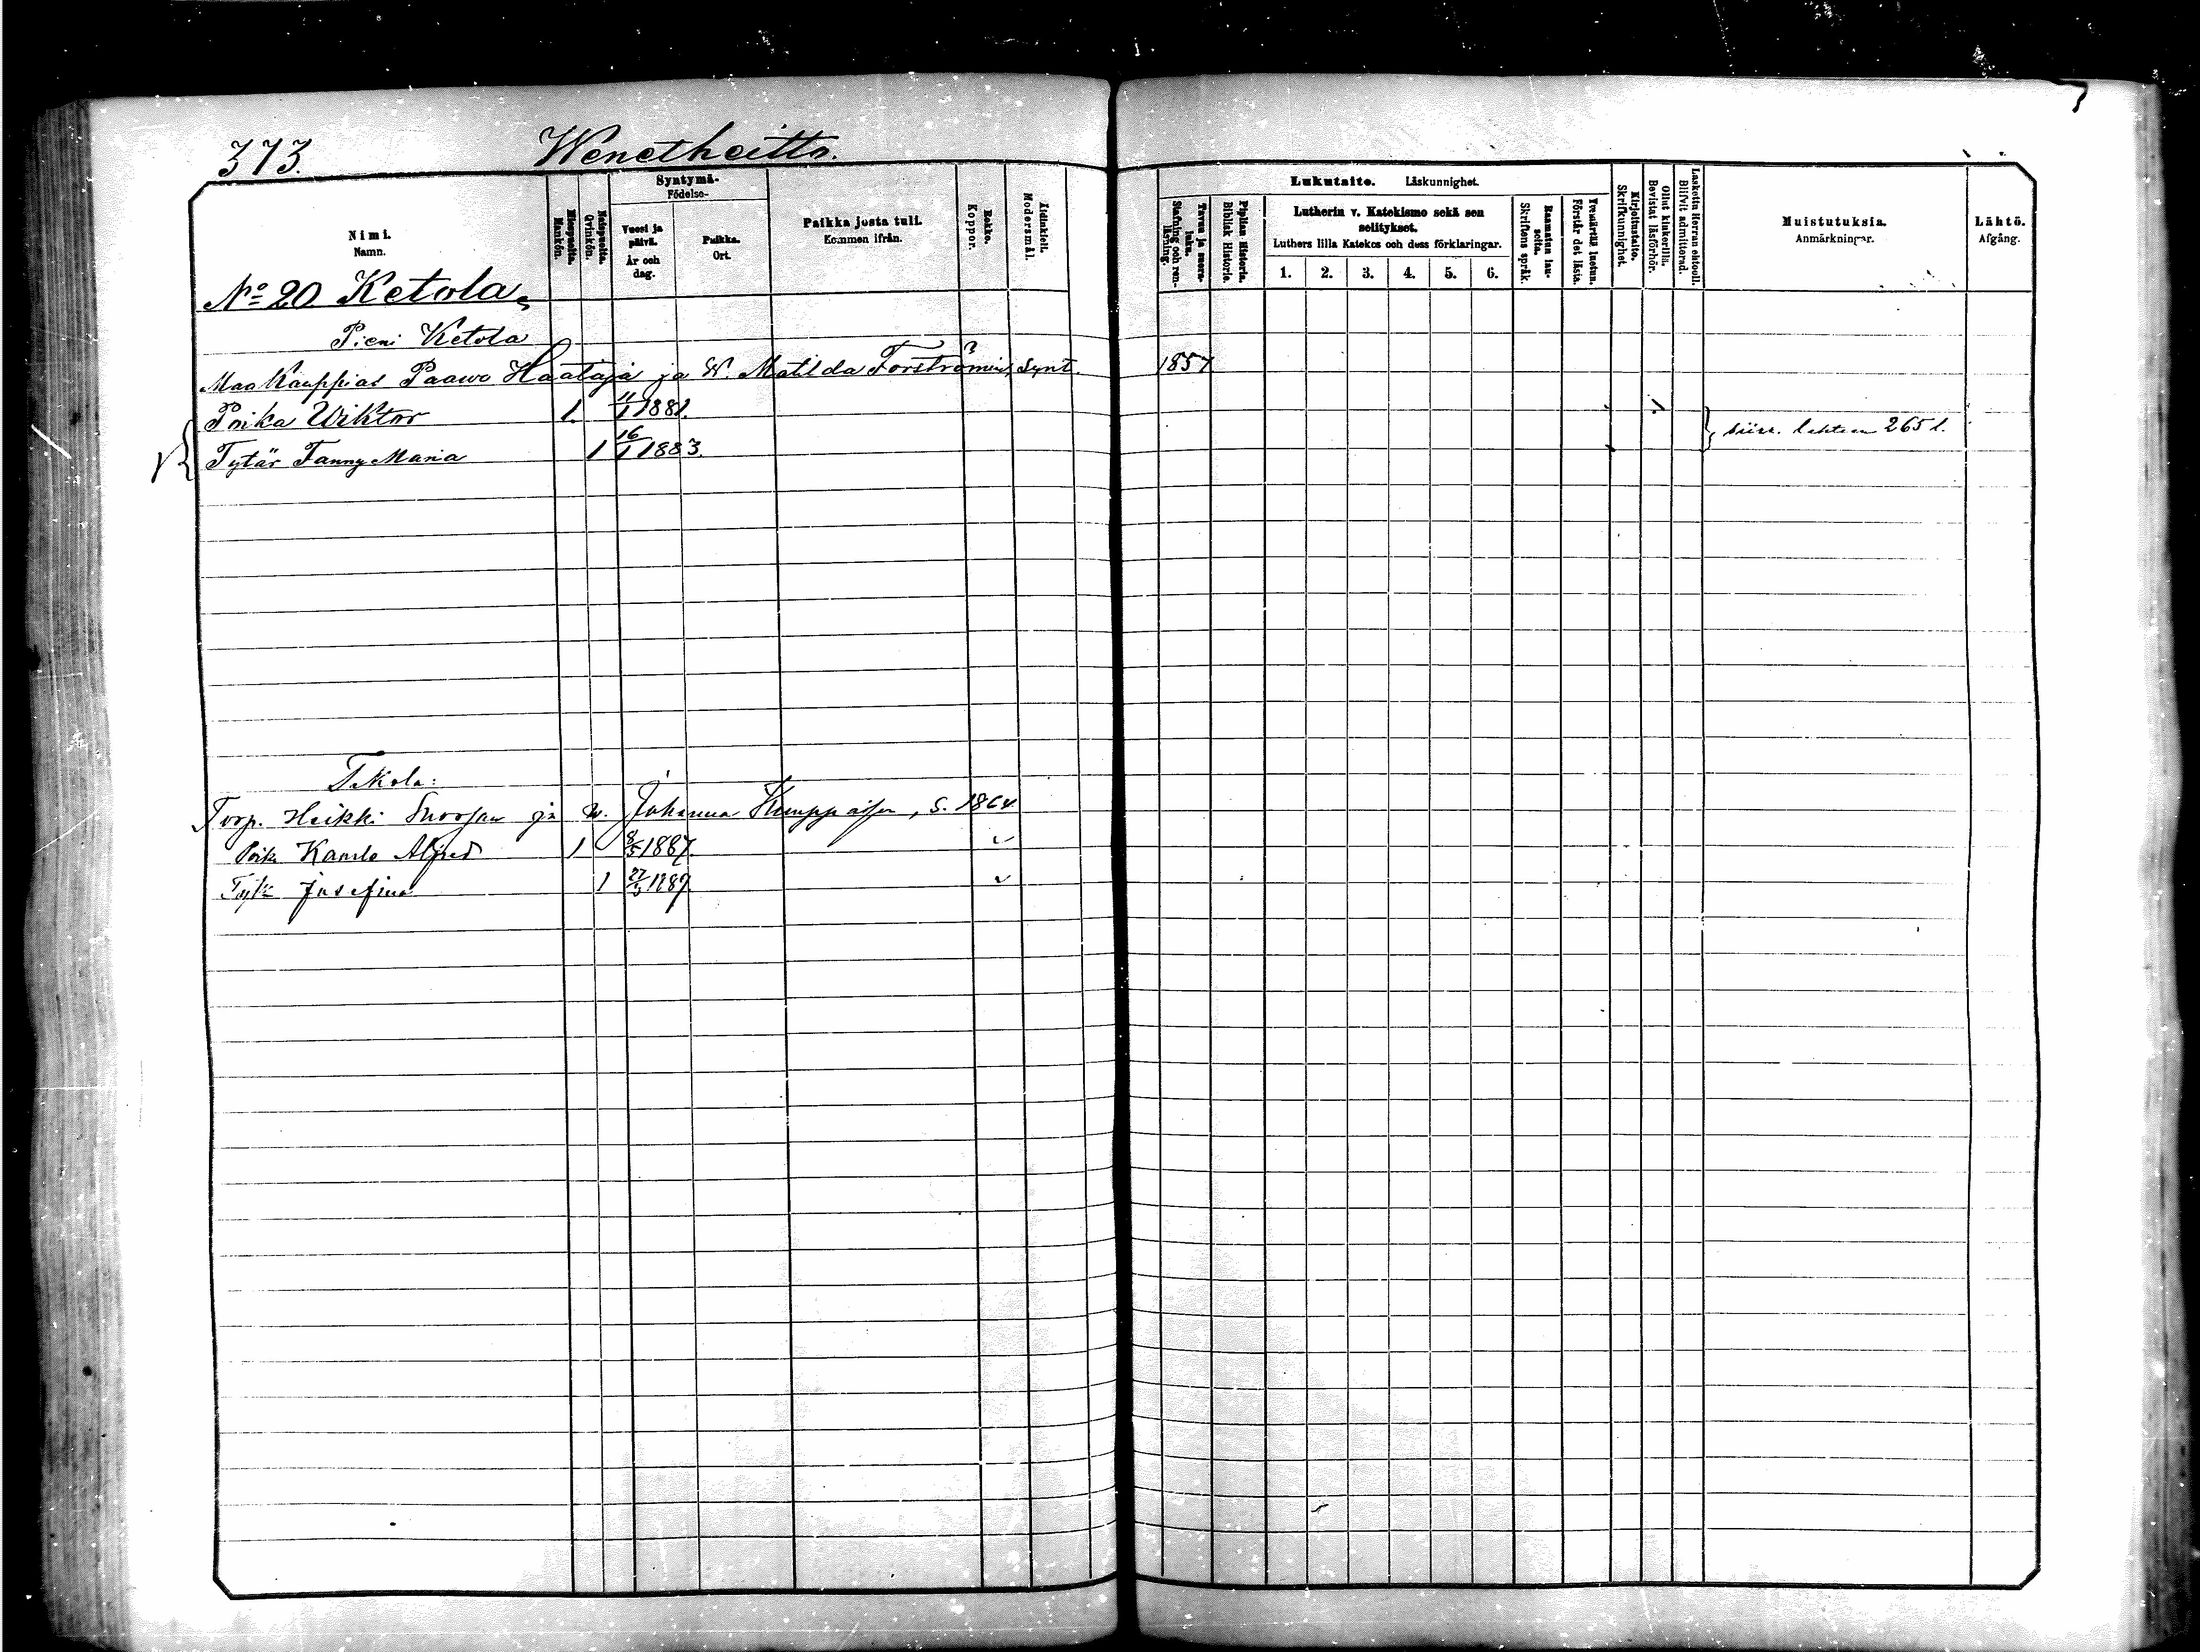 373. Wenetheitto.
Nimi.
Namn.
Miespuolia.
Mankön.
Naispuolia.
Qvinkön.
Syntymä-
Födelse-
Vuosi ja päivä.
År och dag.
Paikka.
Ort.
Paikka josta tuli.
Kommen ifrån.
Rokko.
Koppor.
Äidinkieli.
Modersmål.
Lukutaito. Läskunnighet.
Tavau ja suora-luku.
Stafning och ren-läsning.
Piplian Historia.
Biblisk Historie.
Lutherin v. Katekismo sekä sen selitykset.
Luthers lilla Katekes och dess förklaringar.
1. 2. 3. 4. 5. 6.
Raamatun lau-seita.
Skriftens språk.
Ymmärtää luetun.
Förstår det lästa.
Kirjoitustaito.
Skrifkunnighet.
Ollut kinkerillä.
Bevistat läsförhör.
Laskettu Herran ehtooll.
Blifvit admitterad.
Muistutuksia.
Anmärkningar.
Lähtö.
Afgång.
No 20 Ketola
Pieni Ketola
Maakauppias Paawo Haataja ja W. Matilda Forström, Synt. 1857
Poika Wiktor 1. 11/1 1881.
Tytär Fanny Maria 1 16/1 1883. siirr. lehteen 265 l.
Torp. Heikki ja w. Johanna Kemppainen, s. 1864
Poika Kaarlo Alfred 1 8/5 1887.
Tytär Josefina 1 27/3 1889